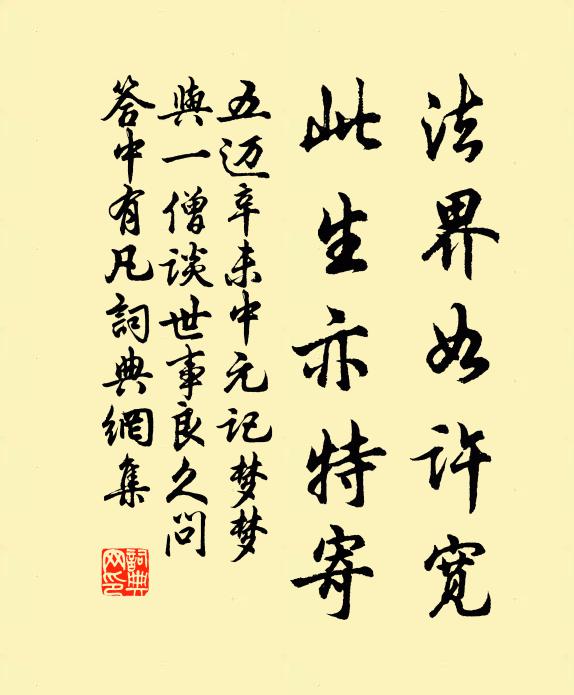 法界如许宽
此生亦特寄
五迈辛未中元记梦梦
與一僧談世事良久问
答中有凡詞典網集
詞典网印